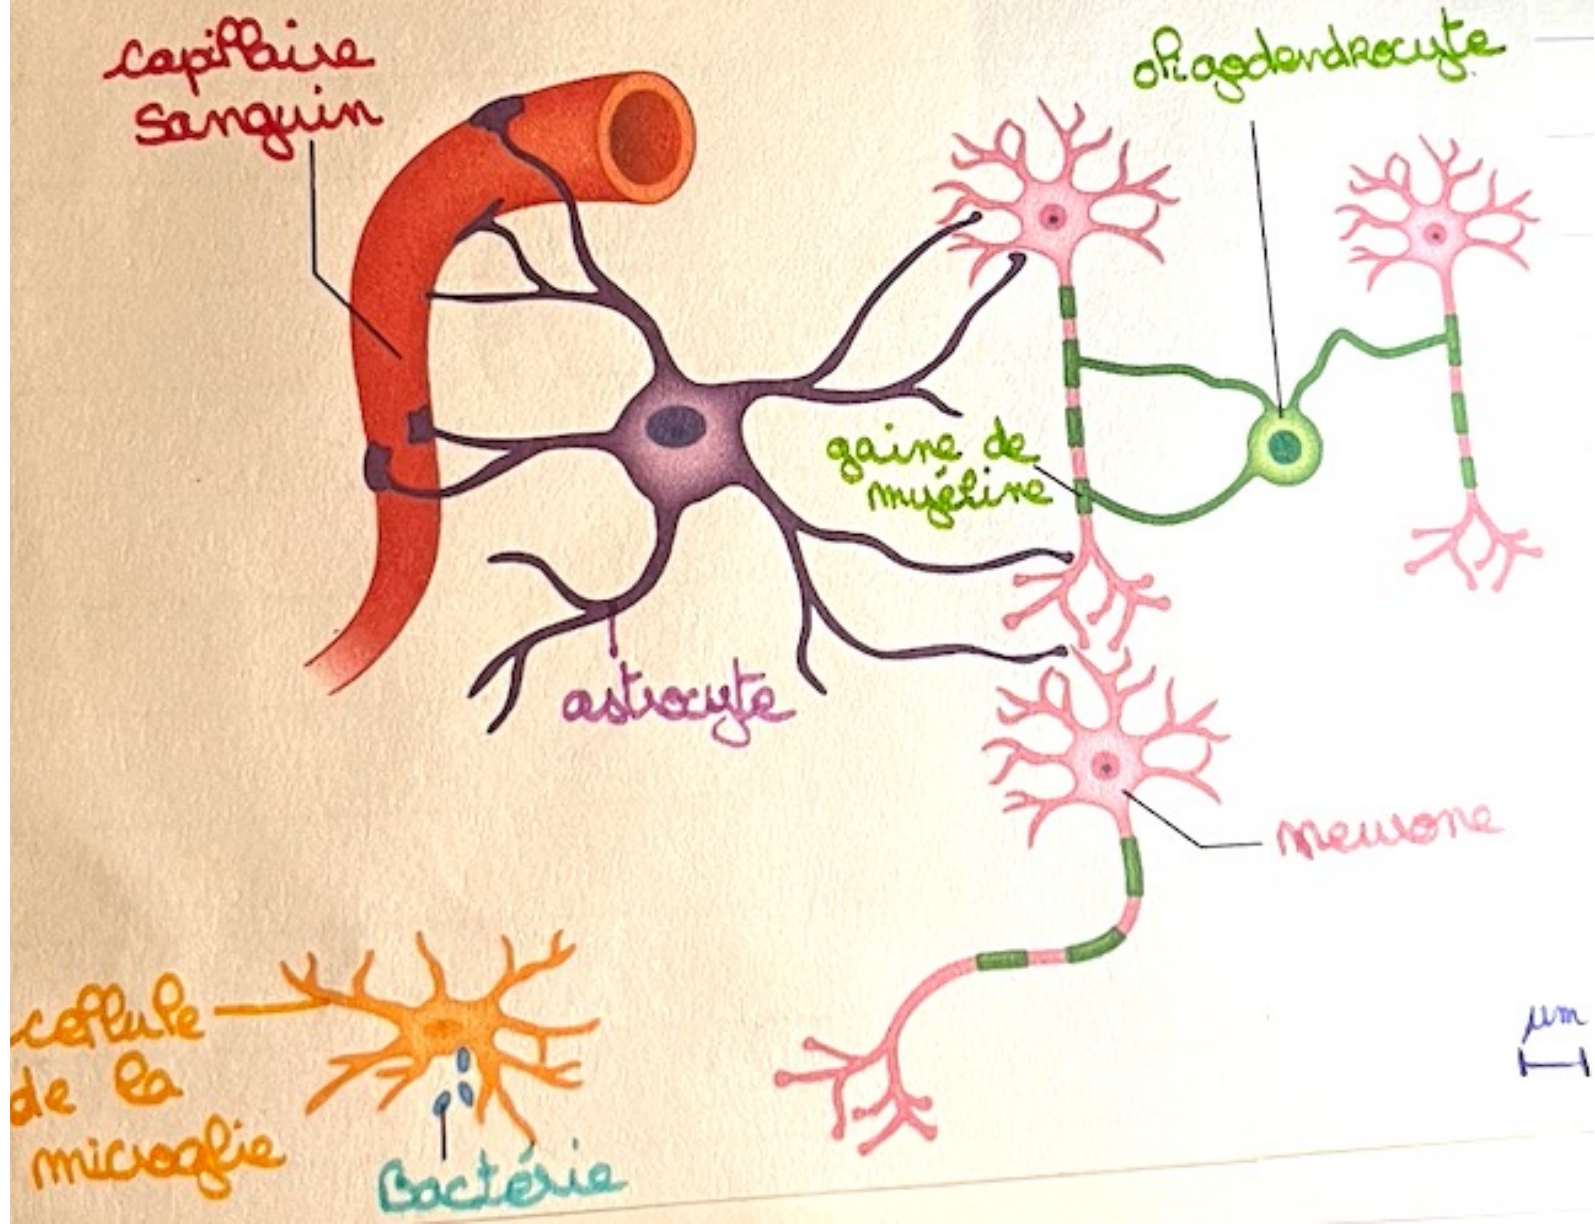 capillaire
sanguin
oligodendrocyte
gaine de
myéline
astrocyte
neurone
cellule
de la
microglie
Bactérie
µm